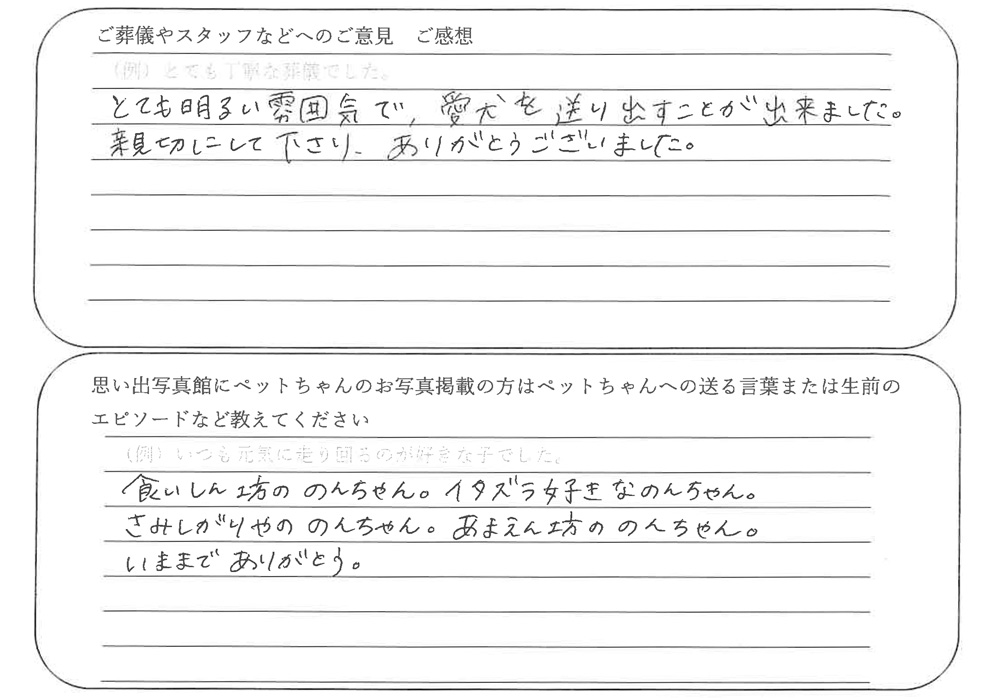 ご葬儀やスタッフなどへのご意見　ご感想
（例）とても丁寧な葬儀でした。
とても明るい雰囲気で、愛犬を送り出すことが出来ました。
親切にして下さり、ありがとうございました。
思い出写真館にペットちゃんのお写真掲載の方はペットちゃんへの送る言葉または生前の
エピソードなど教えてください
（例）いつも元気に走り回るのが好きな子でした。
食いしん坊の のんちゃん。イタズラ好きなのんちゃん。
さみしがりやの のんちゃん。あまえん坊の のんちゃん。
いままで ありがとう。